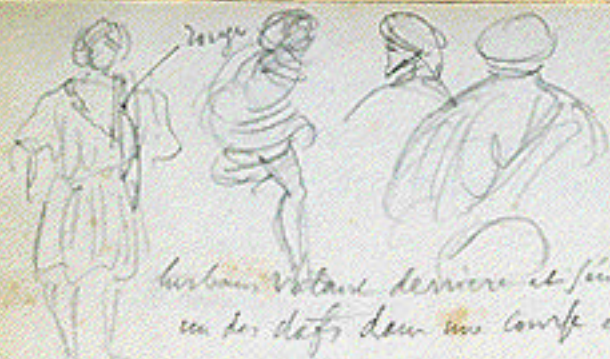 rouge
turban volant derriere et
un des
dans une course